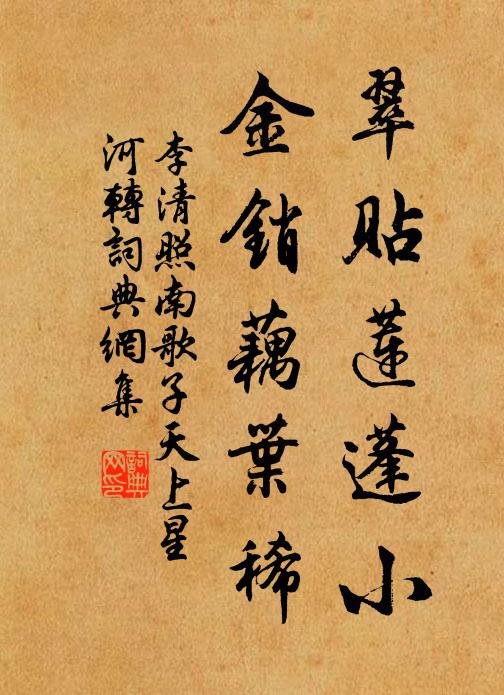 翠貼蓮蓬小
金銷藕葉稀
李清照南歌子天上星
河轉詞典網集
詞典網印